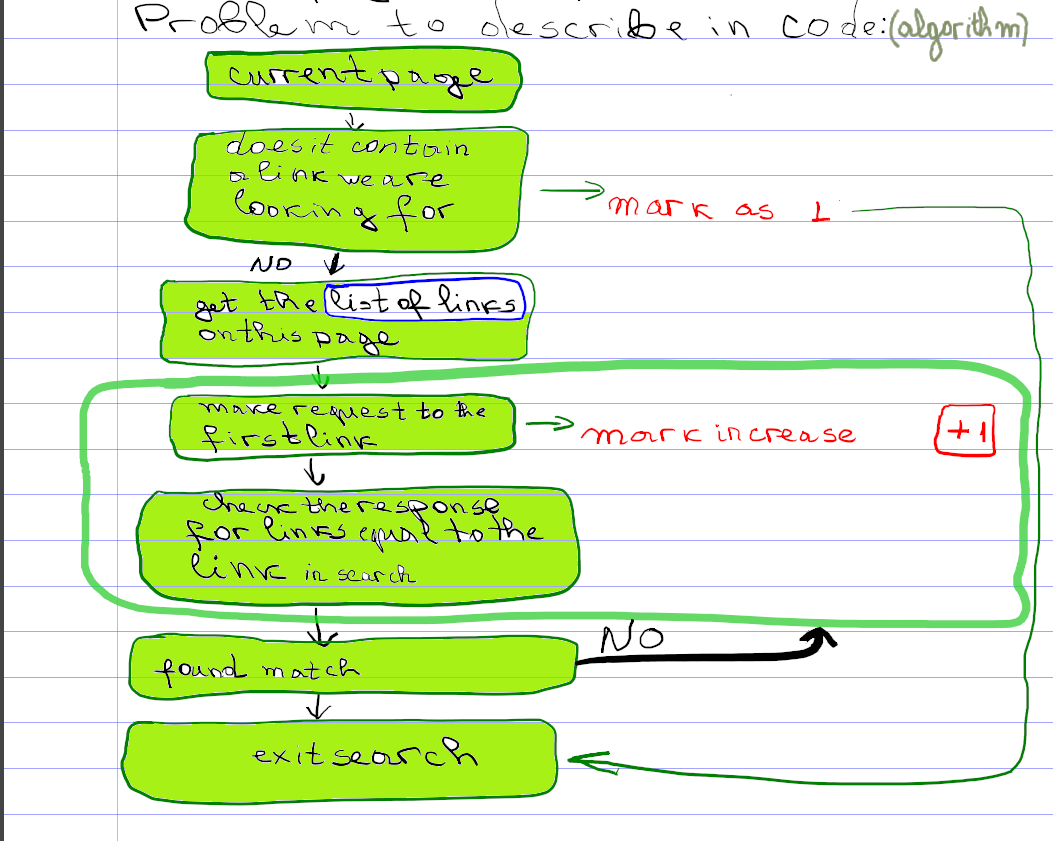 Problem to describe in code: (algorithm)
current page
does it contain
a link we are
looking for
mark as 1
NO
get the list of links
on this page
make request to the
first link
mark increase +1
check the response
for links equal to the
link in search
NO
found match
exit search